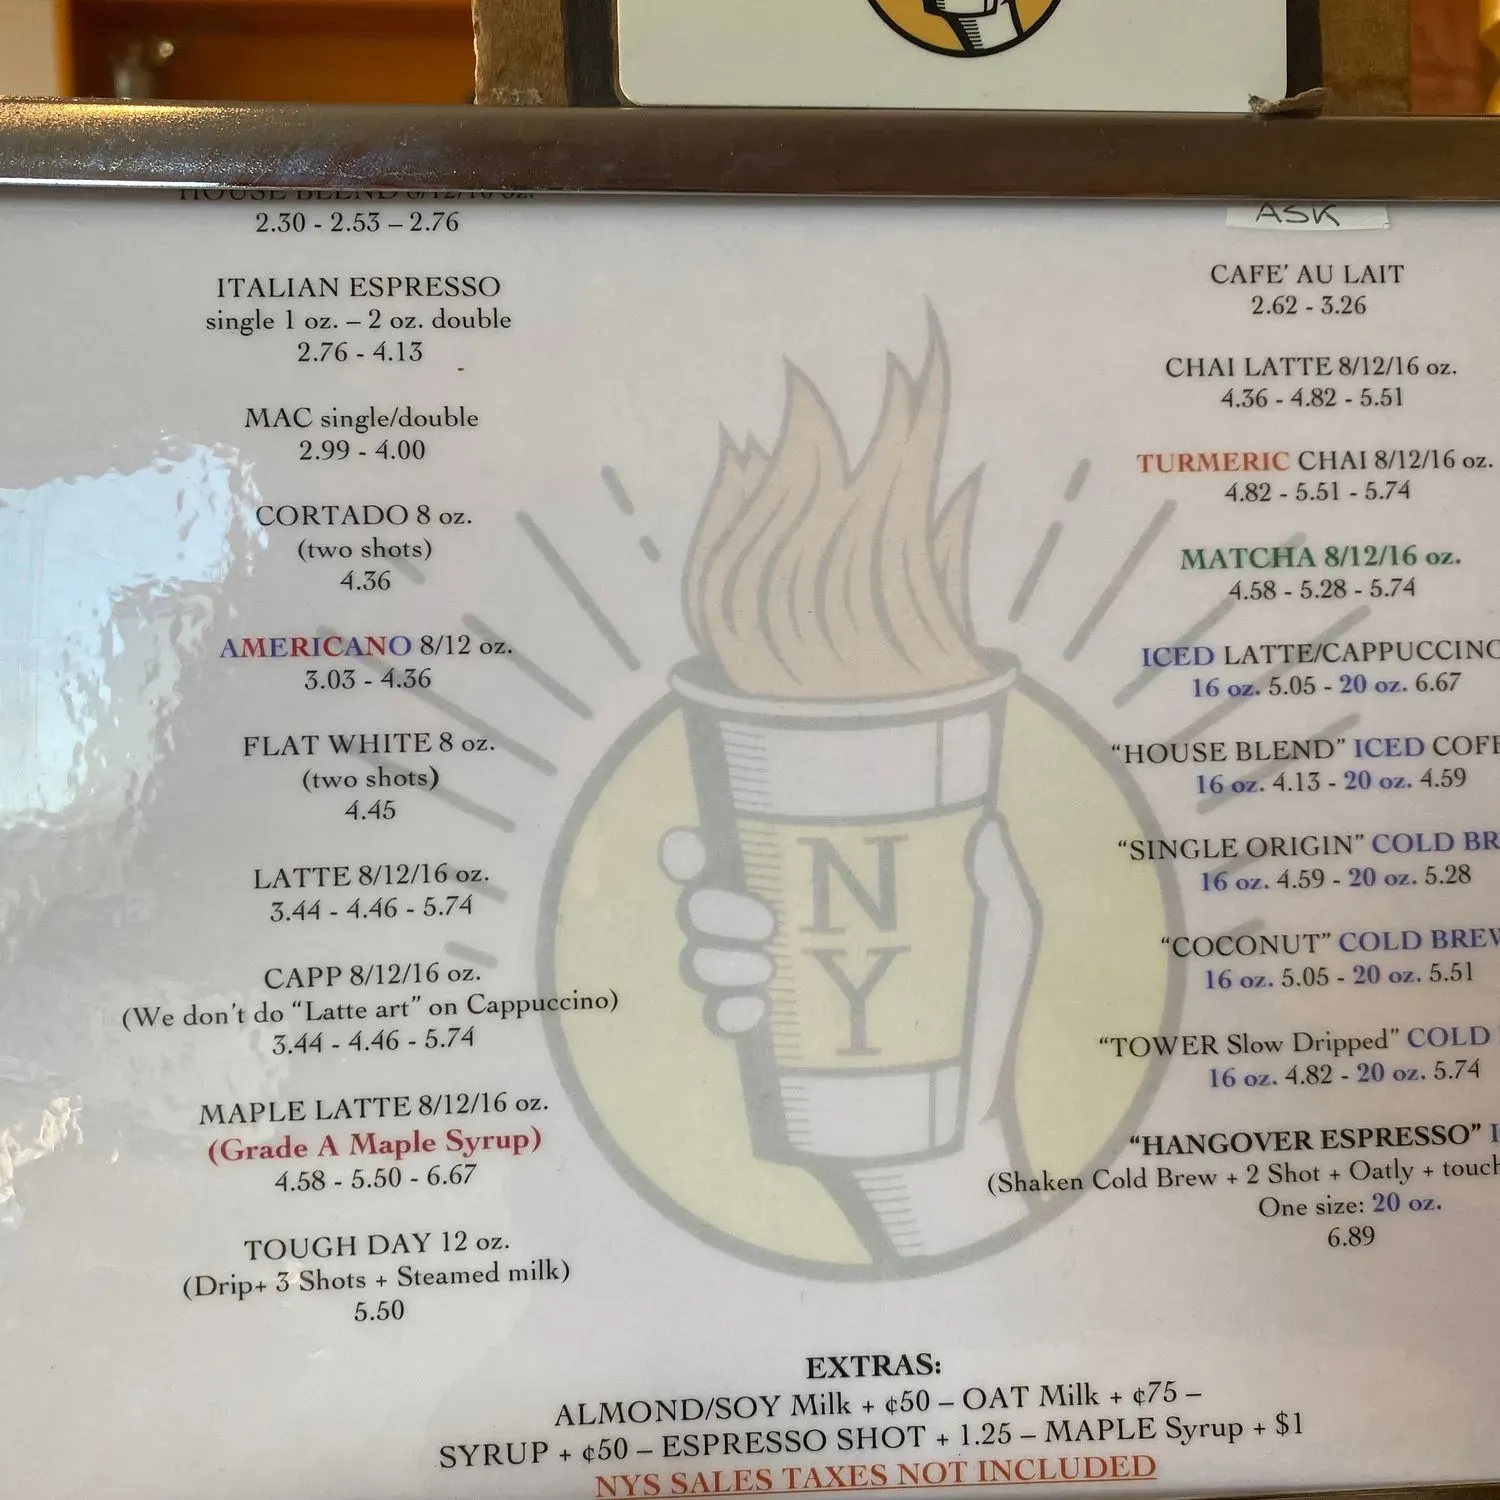 HOUSE BLEND 8/12/16 oz.
2.30 - 2.53 – 2.76
ITALIAN ESPRESSO
single 1 oz. – 2 oz. double
2.76 - 4.13
MAC single/double
2.99 - 4.00
CORTADO 8 oz.
(two shots)
4.36
AMERICANO 8/12 oz.
3.03 - 4.36
FLAT WHITE 8 oz.
(two shots)
4.45
LATTE 8/12/16 oz.
3.44 - 4.46 - 5.74
CAPP 8/12/16 oz.
(We don't do “Latte art” on Cappuccino)
3.44 - 4.46 - 5.74
MAPLE LATTE 8/12/16 oz.
(Grade A Maple Syrup)
4.58 - 5.50 - 6.67
TOUGH DAY 12 oz.
(Drip+ 3 Shots + Steamed milk)
5.50
N
Y
ASK
CAFE’ AU LAIT
2.62 - 3.26
CHAI LATTE 8/12/16 oz.
4.36 - 4.82 - 5.51
TURMERIC CHAI 8/12/16 oz.
4.82 - 5.51 - 5.74
MATCHA 8/12/16 oz.
4.58 - 5.28 - 5.74
ICED LATTE/CAPPUCCINO
16 oz. 5.05 - 20 oz. 6.67
“HOUSE BLEND” ICED
16 oz. 4.13 - 20 oz. 4.59
“SINGLE ORIGIN” COLD
16 oz. 4.59 - 20 oz. 5.28
“COCONUT” COLD BREW
16 oz. 5.05 - 20 oz. 5.51
“TOWER Slow Dripped” COLD
16 oz. 4.82 - 20 oz. 5.74
“HANGOVER ESPRESSO”
(Shaken Cold Brew + 2 Shot + Oatly + touch
One size: 20 oz.
6.89
EXTRAS:
ALMOND/SOY Milk + ¢50 – OAT Milk + ¢75 –
SYRUP + ¢50 – ESPRESSO SHOT + 1.25 – MAPLE Syrup + $1
NYS SALES TAXES NOT INCLUDED